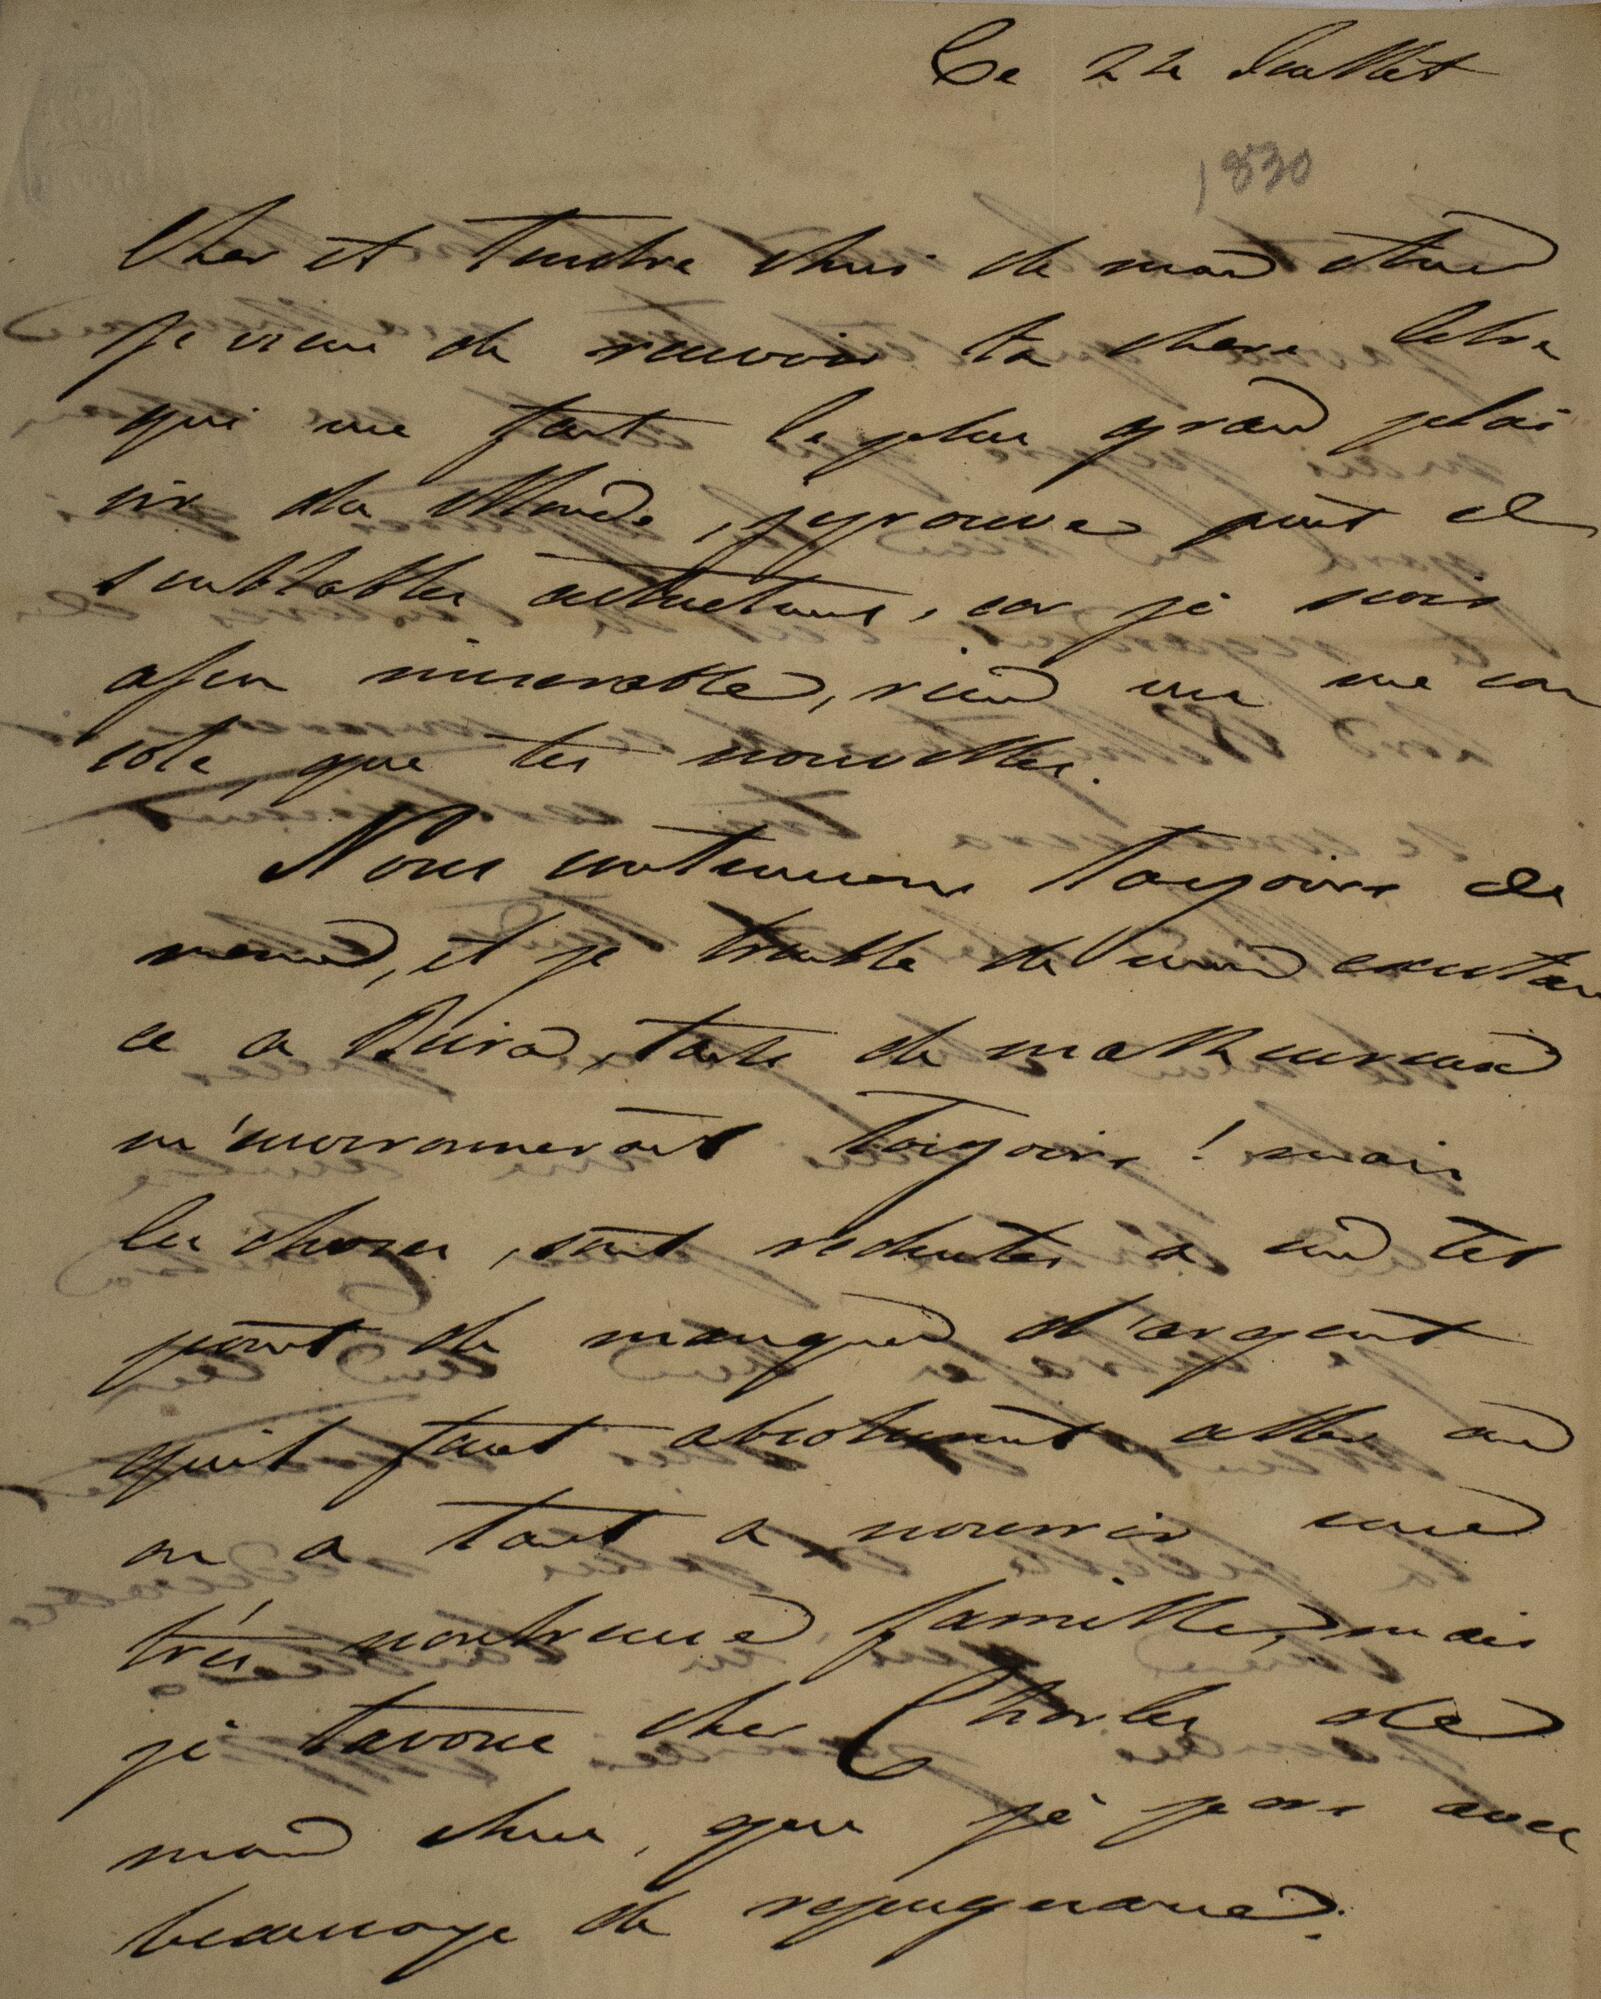 Ce 22 Juillet
1830
Cher et tendre Ami de mon ame
je viens de recevoir ta chere letre
qui me fait le plus grand plai
sir du Monde, j'eprouve point de
semblables car je suis
afin miserable, rien ne me con
sole, que tes nouvelles.
Nous continuons toujours de
meme, et je tremble de mon
ce a tante de malheureux
m'environneront Toujours! mais
les choses, sont reduites a un tel
point de manque d'argent
quil faut absolument aller
on a tant a nourrir une
très nombreuse famille, mais
je tavoue cher Charles de
mon ame, que je pars avec
beaucoup de repugnance.